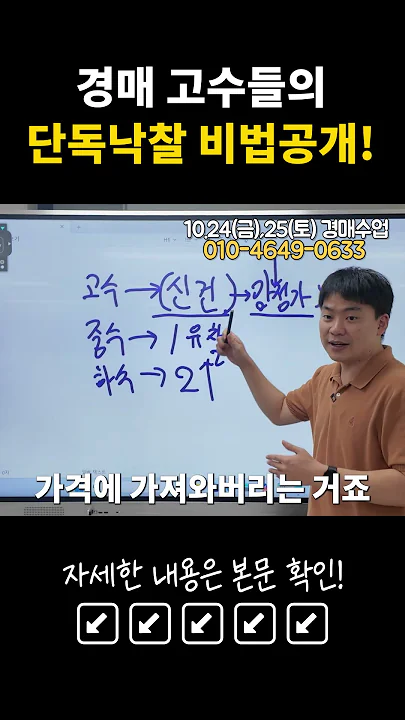 경매 고수들의
단독낙찰 비법공개!
10.24(금),25(토) 경매수업
010-4649-0633
고수 → (신건) →
중수 → 1 유찰
하수 → 2↑
가격에 가져와버리는 거죠
자세한 내용은 본문 확인!